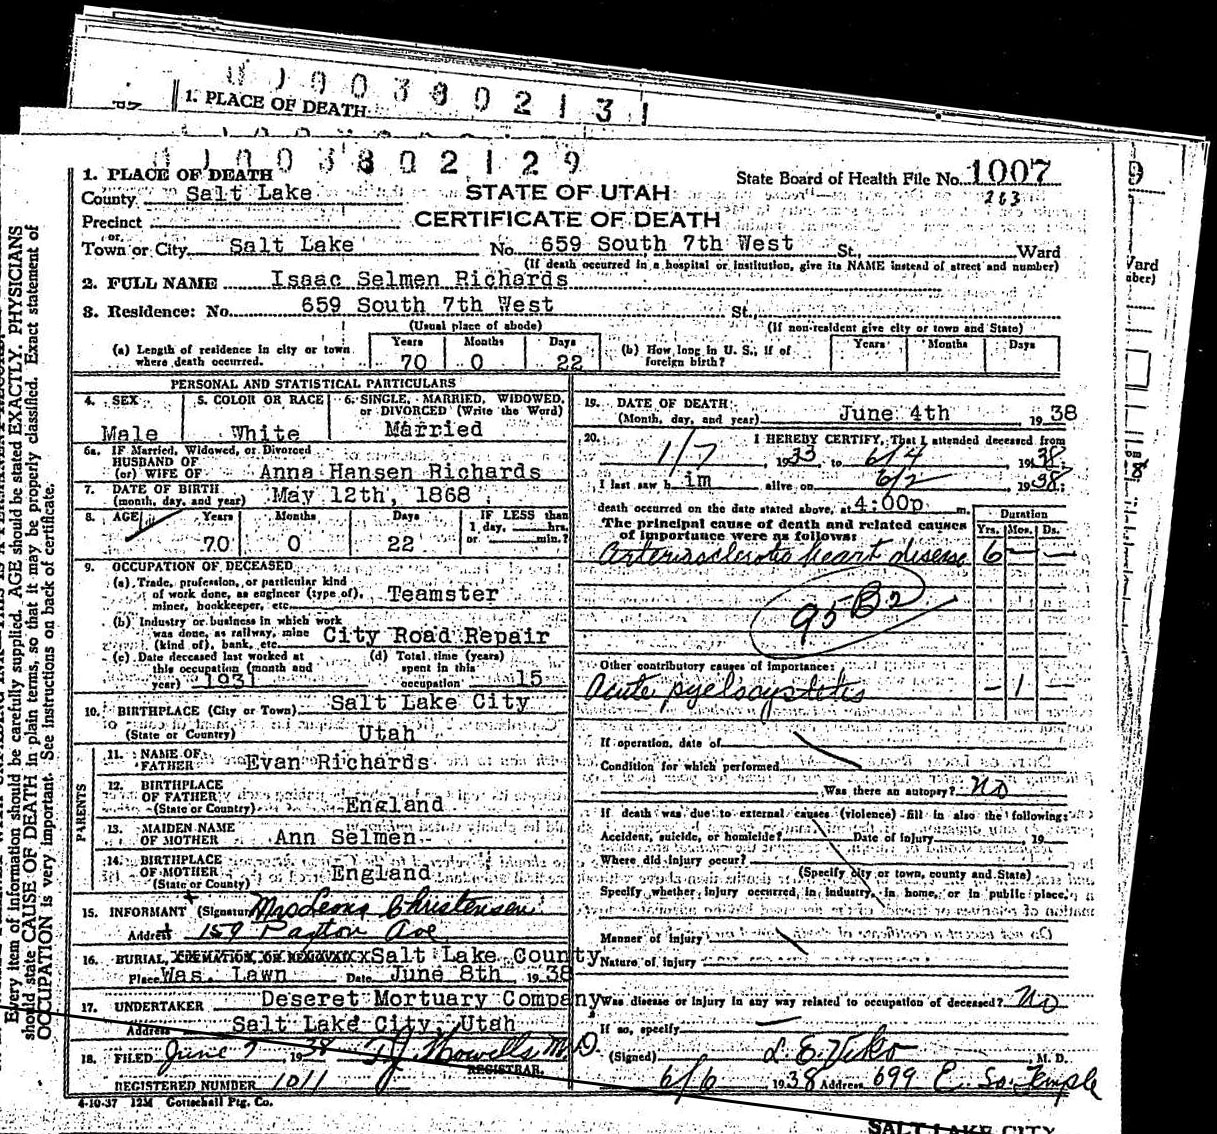 0 1 0 0 3 8 0 2 1 3 1
1. PLACE OF DEATH
0 1 0 0 3 8 0 2 1 2 9
1. PLACE OF DEATH
County Salt Lake
STATE OF UTAH
CERTIFICATE OF DEATH
State Board of Health File No. 1007
263
Precinct
or
Town or City Salt Lake No. 659 South 7th West St., Ward
(If death occurred in a hospital or institution, give its NAME instead of street and number)
2. FULL NAME Isaac Selmen Richards
3. Residence: No. 659 South 7th West St.,
(Usual place of abode) (If non-resident give city or town and State)
(a) Length of residence in city or town where death occurred. Years 70 Months 0 Days 22
(b) How long in U. S., if of foreign birth? Years Months Days
PERSONAL AND STATISTICAL PARTICULARS
4. SEX Male
5. COLOR OR RACE White
6. SINGLE, MARRIED, WIDOWED, or DIVORCED (Write the Word) Married
6a. IF Married, Widowed, or Divorced
HUSBAND OF
(or) WIFE OF Anna Hansen Richards
7. DATE OF BIRTH
(month, day, and year) May 12th, 1868
8. AGE Years 70 Months 0 Days 22 IF LESS than 1 day, hrs. or min.?
9. OCCUPATION OF DECEASED
(a) Trade, profession, or particular kind
of work done, as engineer (type of),
miner, bookkeeper, etc. Teamster
(b) Industry or business in which work
was done, as railway, mine
(kind of), bank, etc. City Road Repair
(c) Date deceased last worked at
this occupation (month and
year) 1931
(d) Total time (years)
spent in this
occupation 15
10. BIRTHPLACE (City or Town) Salt Lake City
(State or Country) Utah
PARENTS
11. NAME OF
FATHER Evan Richards
12. BIRTHPLACE
OF FATHER
(State or Country) England
13. MAIDEN NAME
OF MOTHER Ann Selmen
14. BIRTHPLACE
OF MOTHER
(State or County) England
15. INFORMANT (Signature) Mrs Leona Christensen
Address 159 Paxton Ave
16. BURIAL, CREMATION, OR REMOVAL Salt Lake County
Place Was. Lawn Date June 8th 1938
17. UNDERTAKER Deseret Mortuary Company
Address Salt Lake City, Utah
18. FILED June 7 1938 M.D.
REGISTRAR.
REGISTERED NUMBER 1011
4-10-37 12M Gottschall Ptg. Co.
19. DATE OF DEATH
(Month, day, and year) June 4th 1938
20. I HEREBY CERTIFY, That I attended deceased from
1/7, 1933, to 6/4 1938
I last saw him alive on 6/2 1938;
death occurred on the date stated above, at 4:00p m.
The principal cause of death and related causes
of importance were as follows:
Duration
Yrs. Mos. Ds.
Arteriosclerotic heart disease 6 — —
95 B2
Other contributory causes of importance:
Acute pyelocystitis — 1 —
If operation, date of
Condition for which performed
Was there an autopsy? No
If death was due to external causes (violence) fill in also the following:
Accident, suicide, or homicide? Date of injury 19
Where did injury occur?
(Specify city or town, county and State)
Specify whether injury occurred in industry, in home, or in public place.
Manner of injury
Nature of injury
Was disease or injury in any way related to occupation of deceased? No
If so, specify
(Signed) L. E. Viko M. D.
6/6 1938 Address 699 E. So. Temple
SALT LAKE CITY
Every item of information should be carefully supplied. AGE should be stated EXACTLY. PHYSICIANS
should state CAUSE OF DEATH in plain terms, so that it may be properly classified. Exact statement of
OCCUPATION is very important. See instructions on back of certificate.